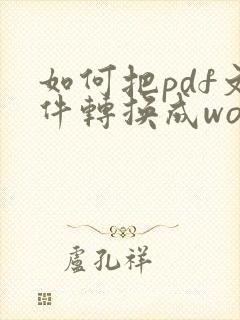 如何把pdf文
件轉換成wo
盧孔祥